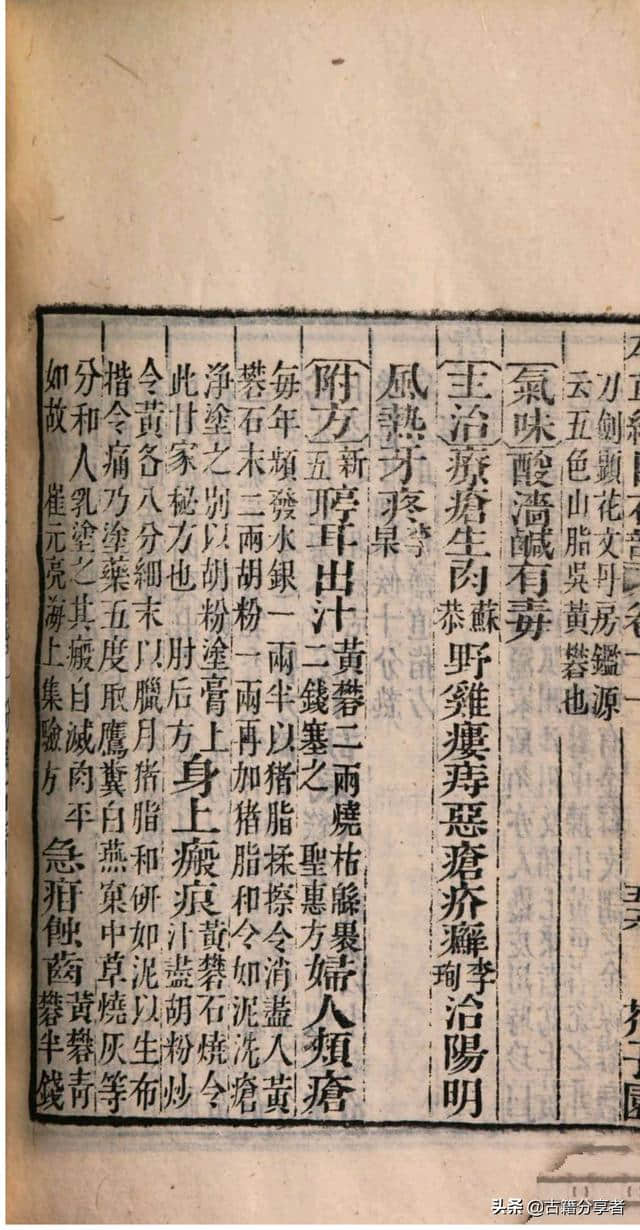 本草綱目石部 卷十一 五六 芥子園
刀劍顯花文丹房鑑源
云五色山脂吳黃礬也
〔氣味〕酸濇鹹有毒
〔主治〕療瘡生肉蘇恭野雞瘻痔惡瘡疥癬李珣治陽明
風熱牙疼李杲
〔附方〕新五聤耳出汁黃礬二兩燒枯綿裹二錢塞之 聖惠方婦人頰瘡
每年頻發水銀一兩半以猪脂揉擦令消盡入黃
礬石末二兩胡粉一兩再加猪脂和令如泥洗瘡
淨塗之別以胡粉塗膏上
此甘家秘方也 肘后方身上瘢痕黃礬石燒令汁盡胡粉炒
令黃各八分細末以臘月猪脂和研如泥以生布
揩令痛乃塗藥五度取鷹糞白燕窠中草燒灰等
分和人乳塗之其瘢自滅肉平
如故 崔元亮海上集驗方急疳蝕齒黃礬青礬半錢
头条 @古籍分享者